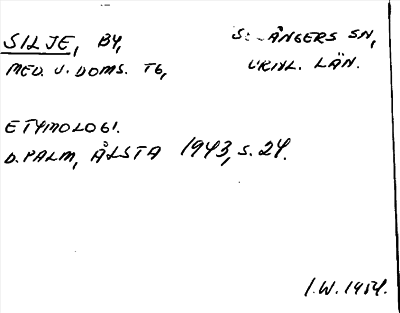 SILJE, BY, S: ÅNGERS SN,
MED. J. DOMS. TG, VRNL. LÄN.
ETYMOLOGI.
D. PALM, ÅLSTA 1943, S. 24.
I.W. 1954.